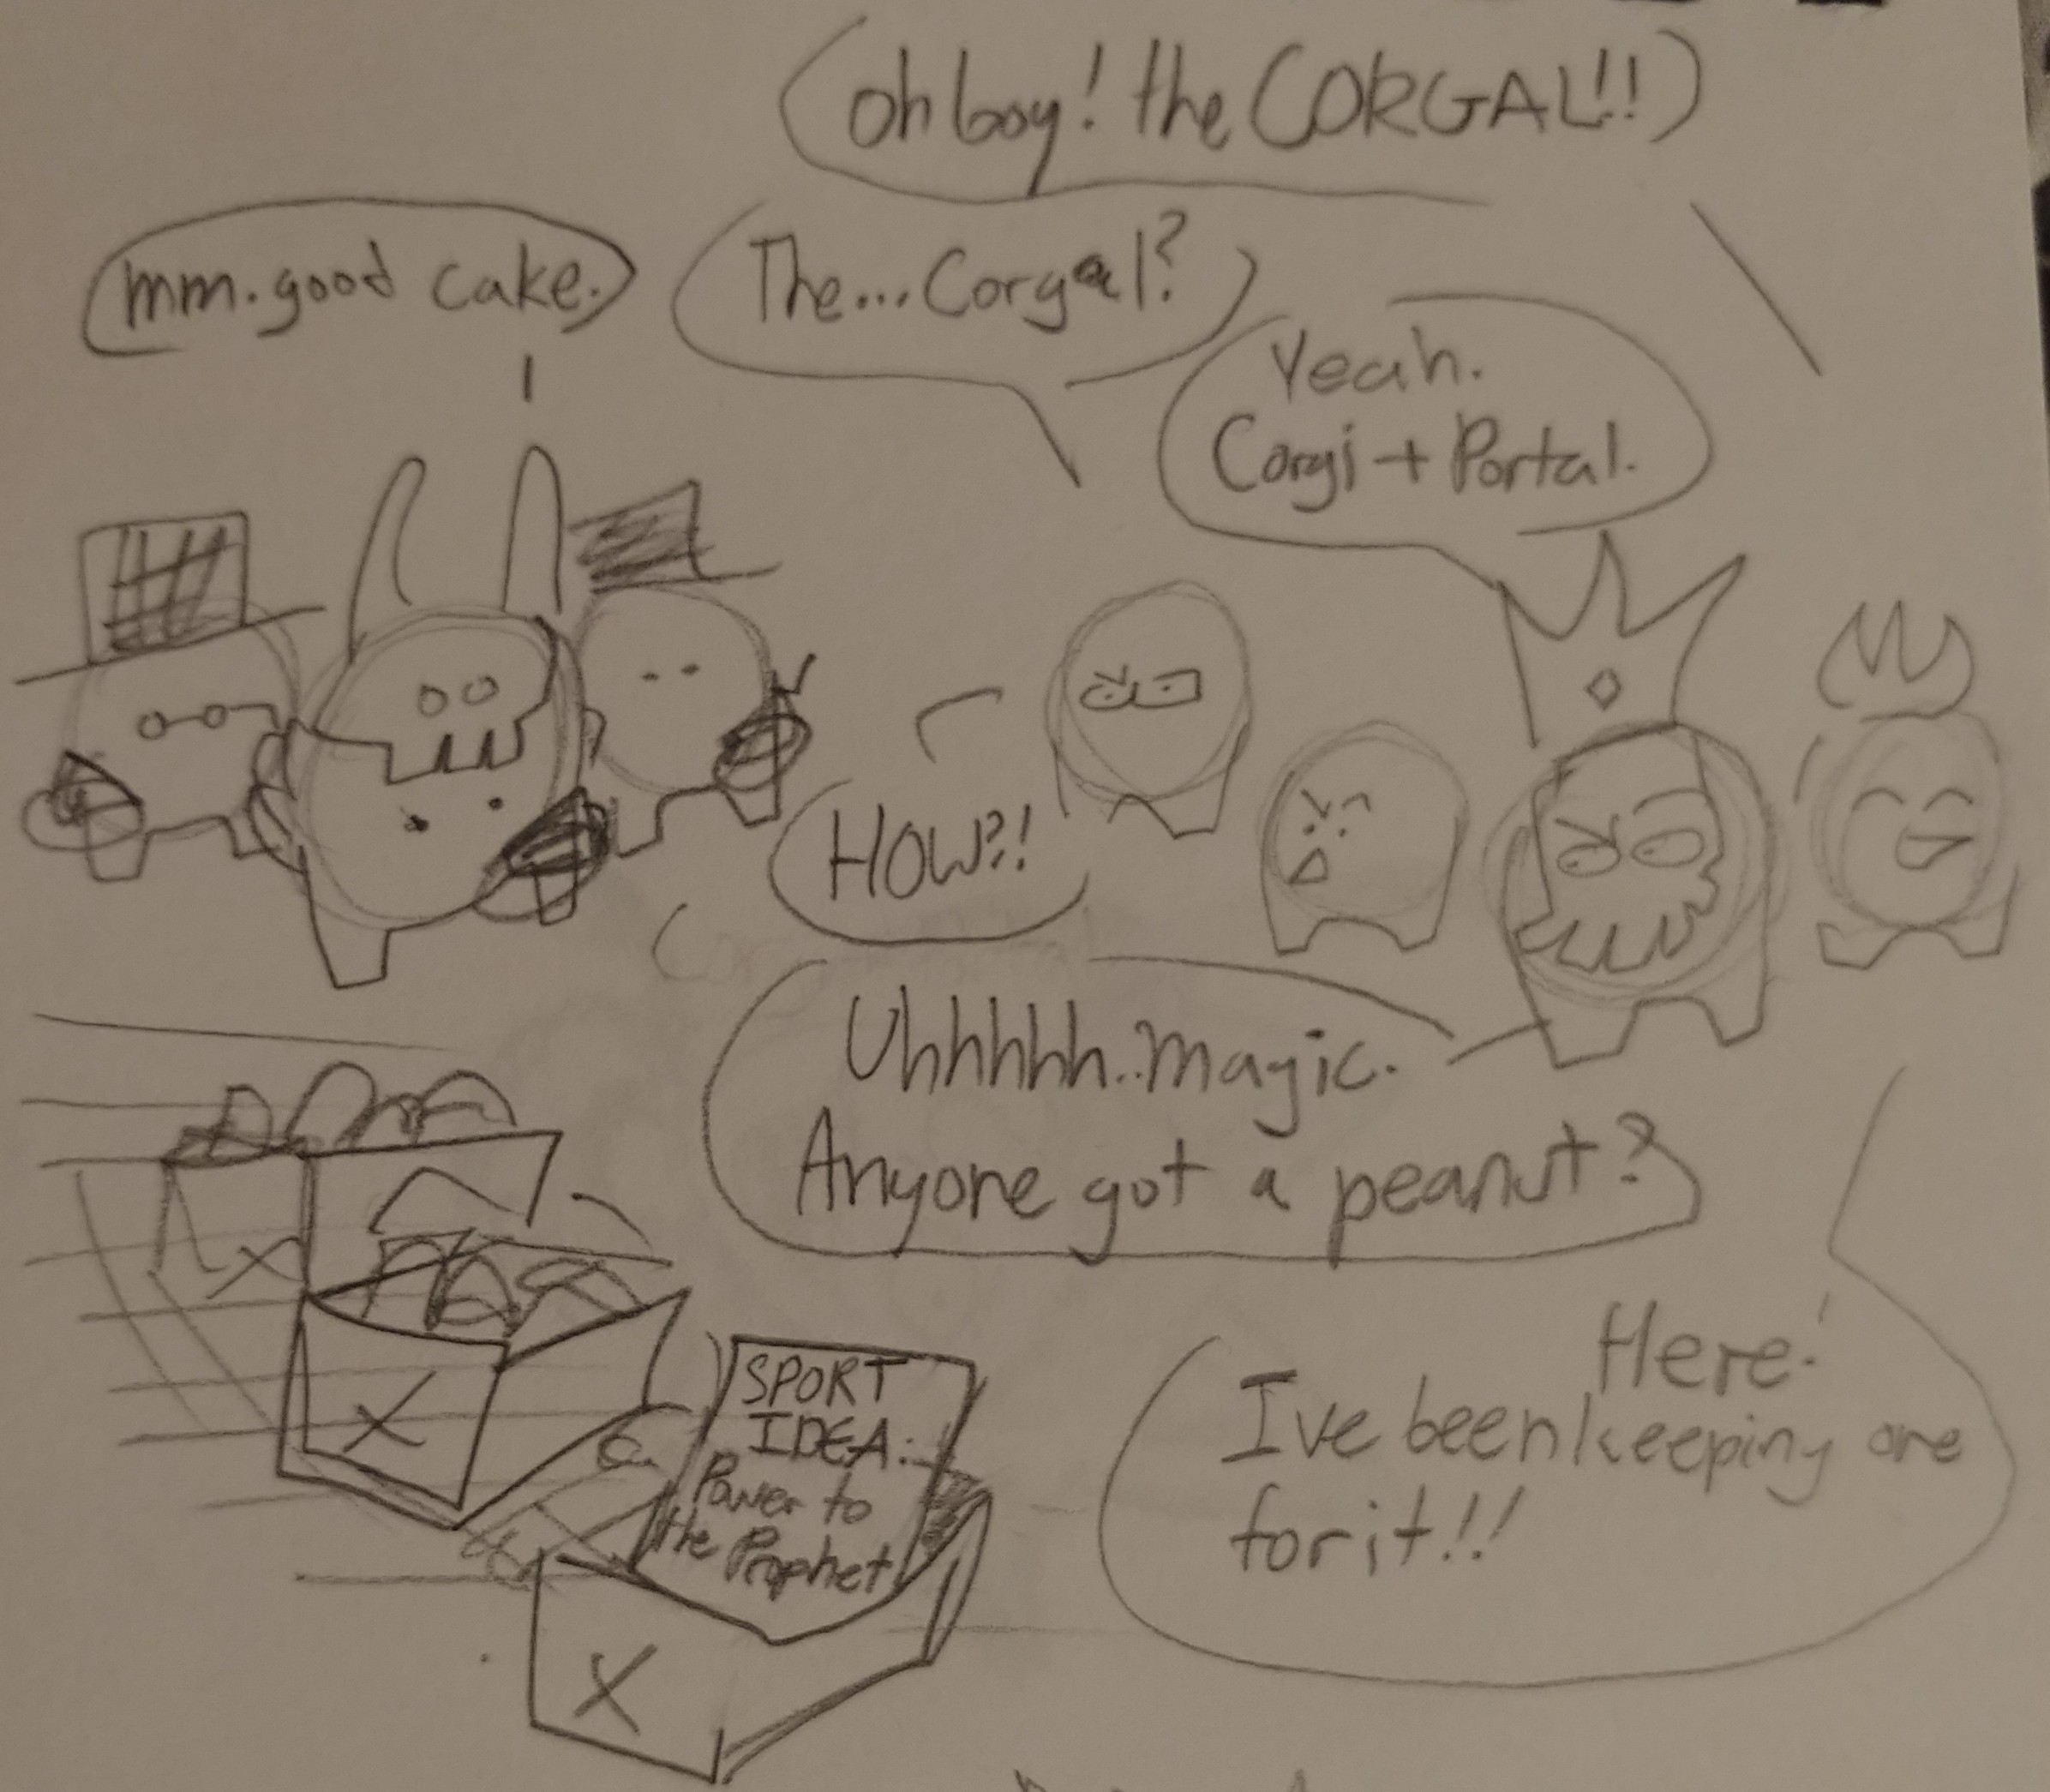 oh boy! the CORGAL!!
mm. good cake.
The... Corgal?
Yeah.
Corgi + Portal.
HOW?!
Uhhhhh.. magic.
Anyone got a peanut?
Here!
I've been keeping one
for it!!
SPORT
IDEA:
Power to
the Prophet
X
X
X